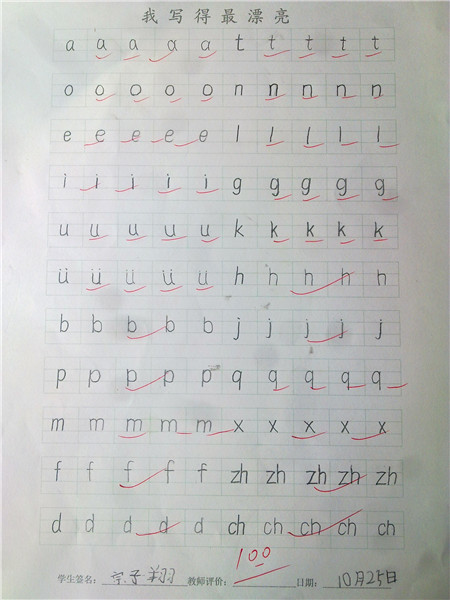 我写得最漂亮
a a a a a t t t t t
o o o o o n n n n n
e e e e e l l l l l
i i i i i g g g g g
u u u u u k k k k k
ü ü ü ü ü h h h h h
b b b b b j j j j j
p p p p p q q q q q
m m m m m x x x x x
f f f f f zh zh zh zh zh
d d d d d ch ch ch ch ch
100
学生签名: 宗子翔 教师评价: 日期: 10月25日